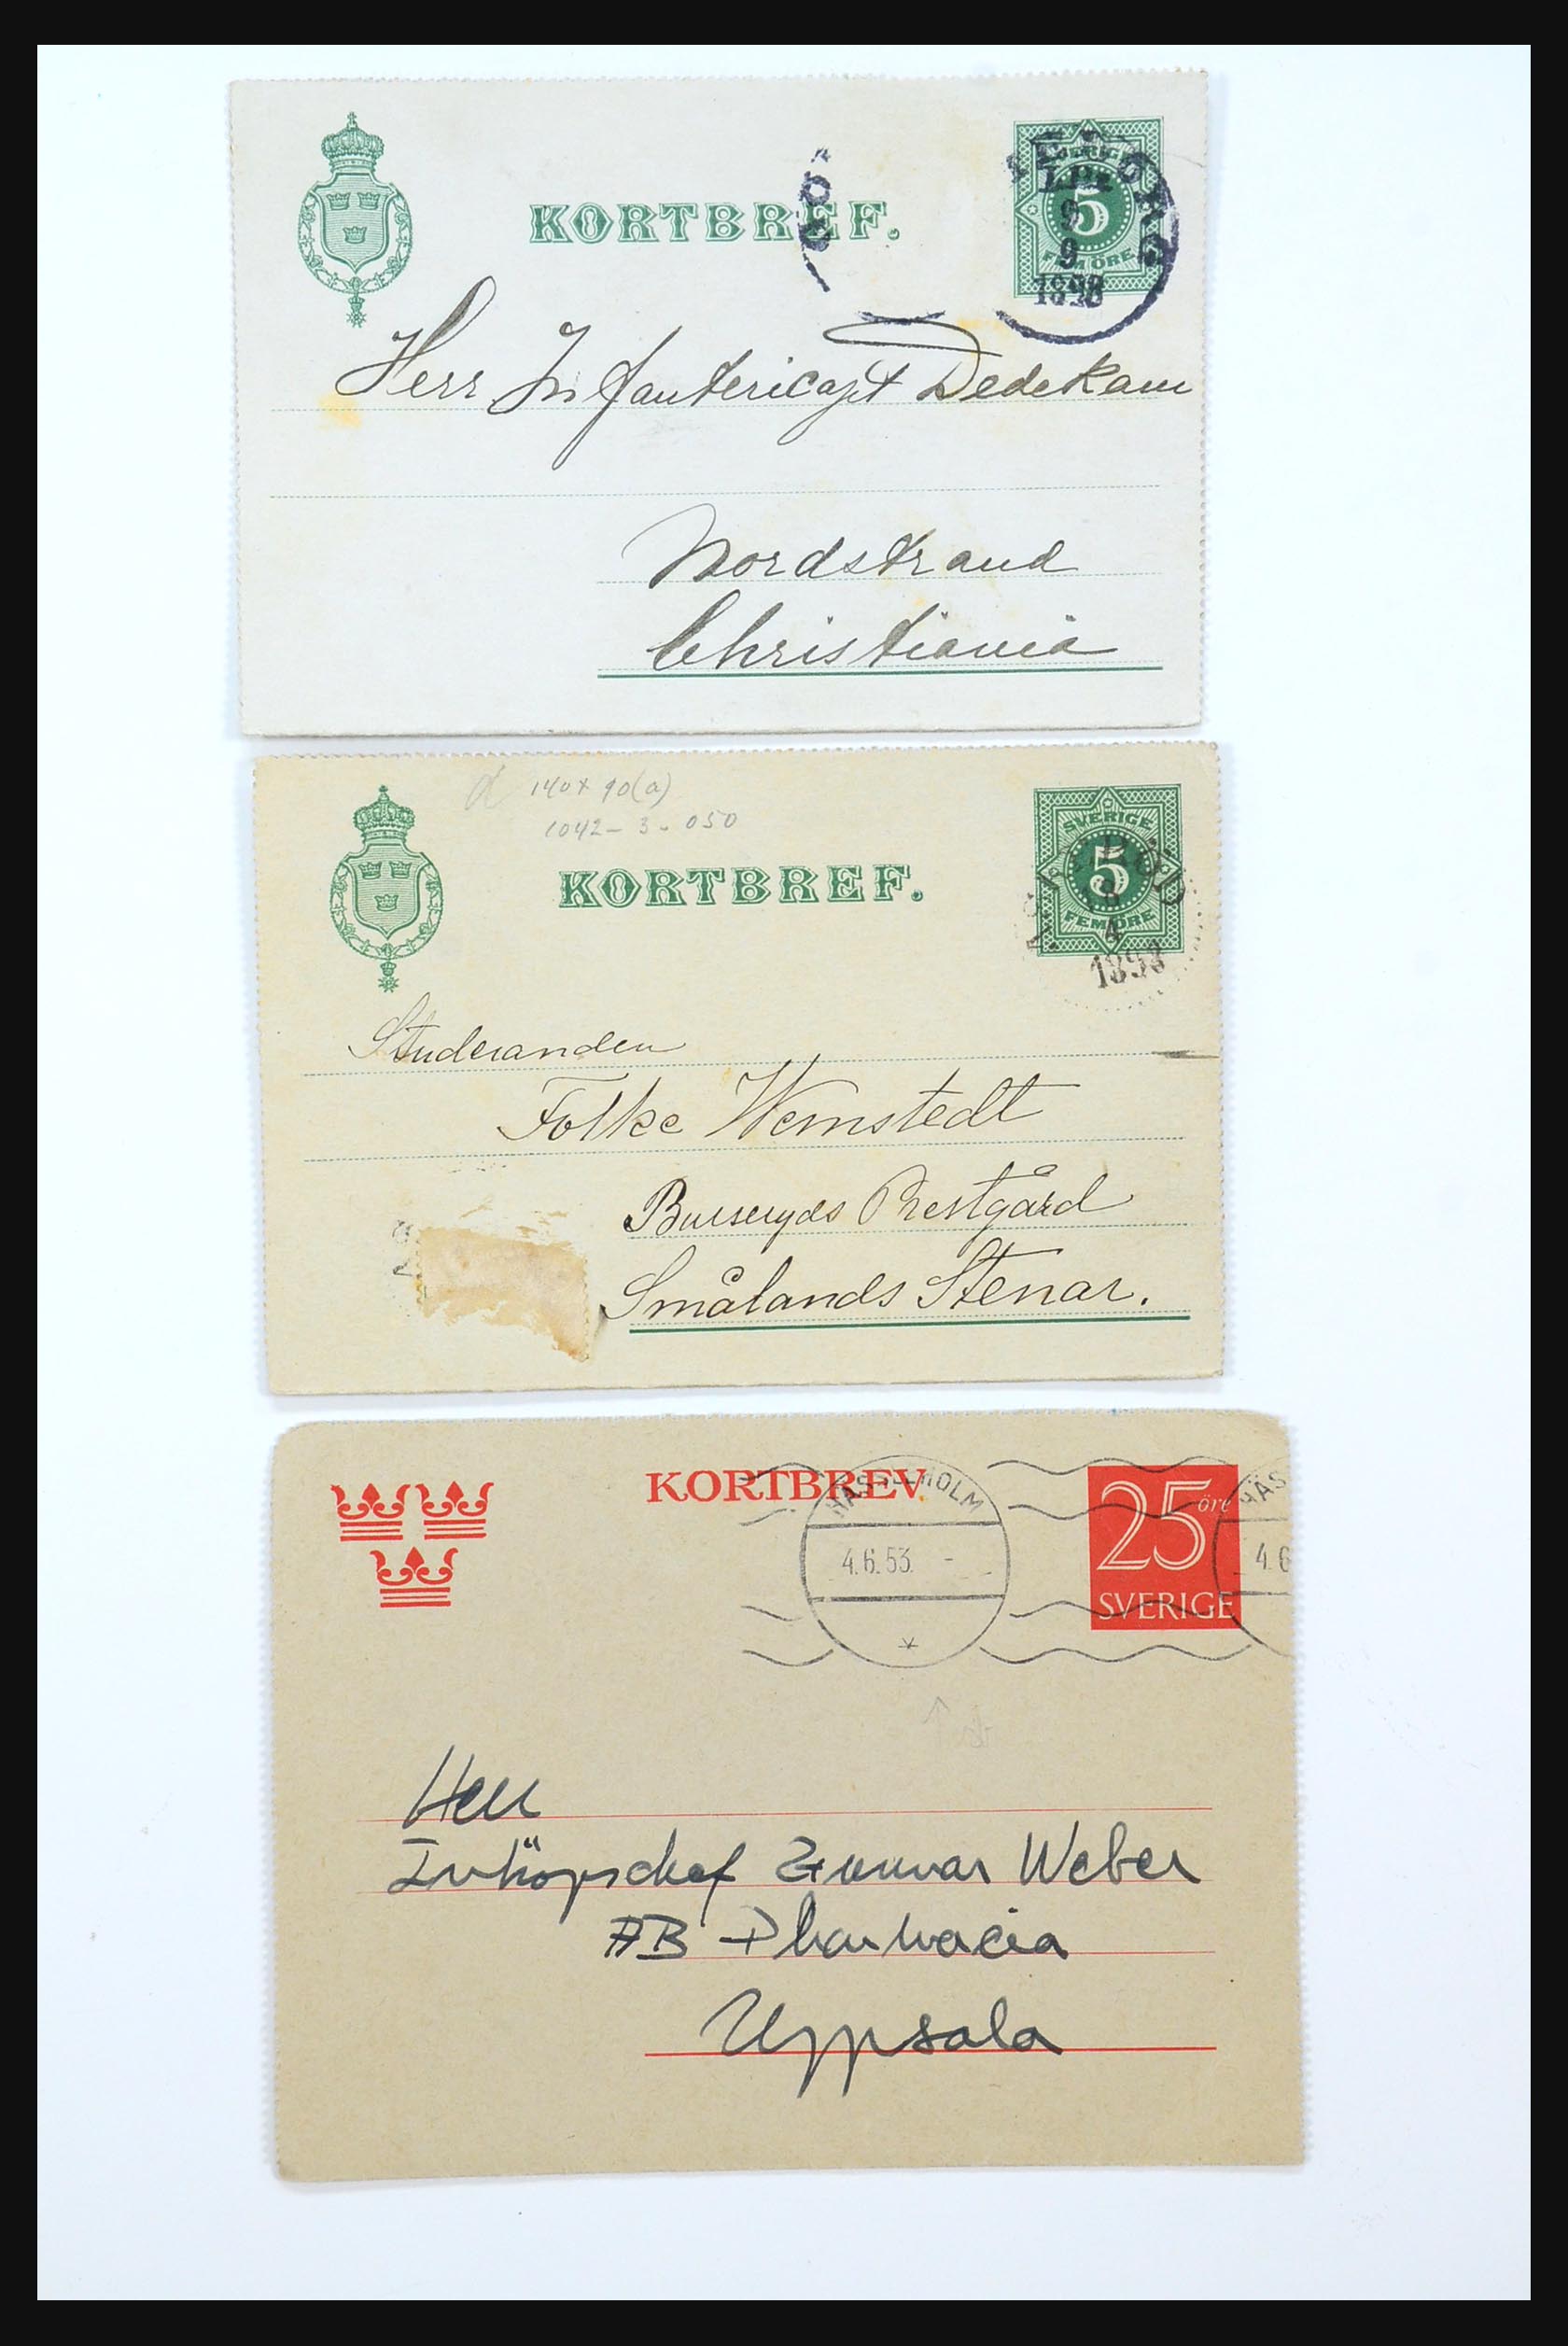 KORTBREF.
SVERIGE
5
FEM ÖRE
L.Br
9
9
1898
Herr Infantericapt Dedekam
Nordstrand
Christiania
140x90(a)
1042-3.050
KORTBREF.
SVERIGE
5
FEM ÖRE
8
4
1893
Studeranden
Folke Wernstedt
Burseryds Prestgård
Smålands Stenar.
KORTBREV
HÄSTHOLM
4.6.53. -
25 öre
SVERIGE
HÄS
4.6
Herr
Inköpschef Gunnar Weber
AB Pharmacia
Uppsala